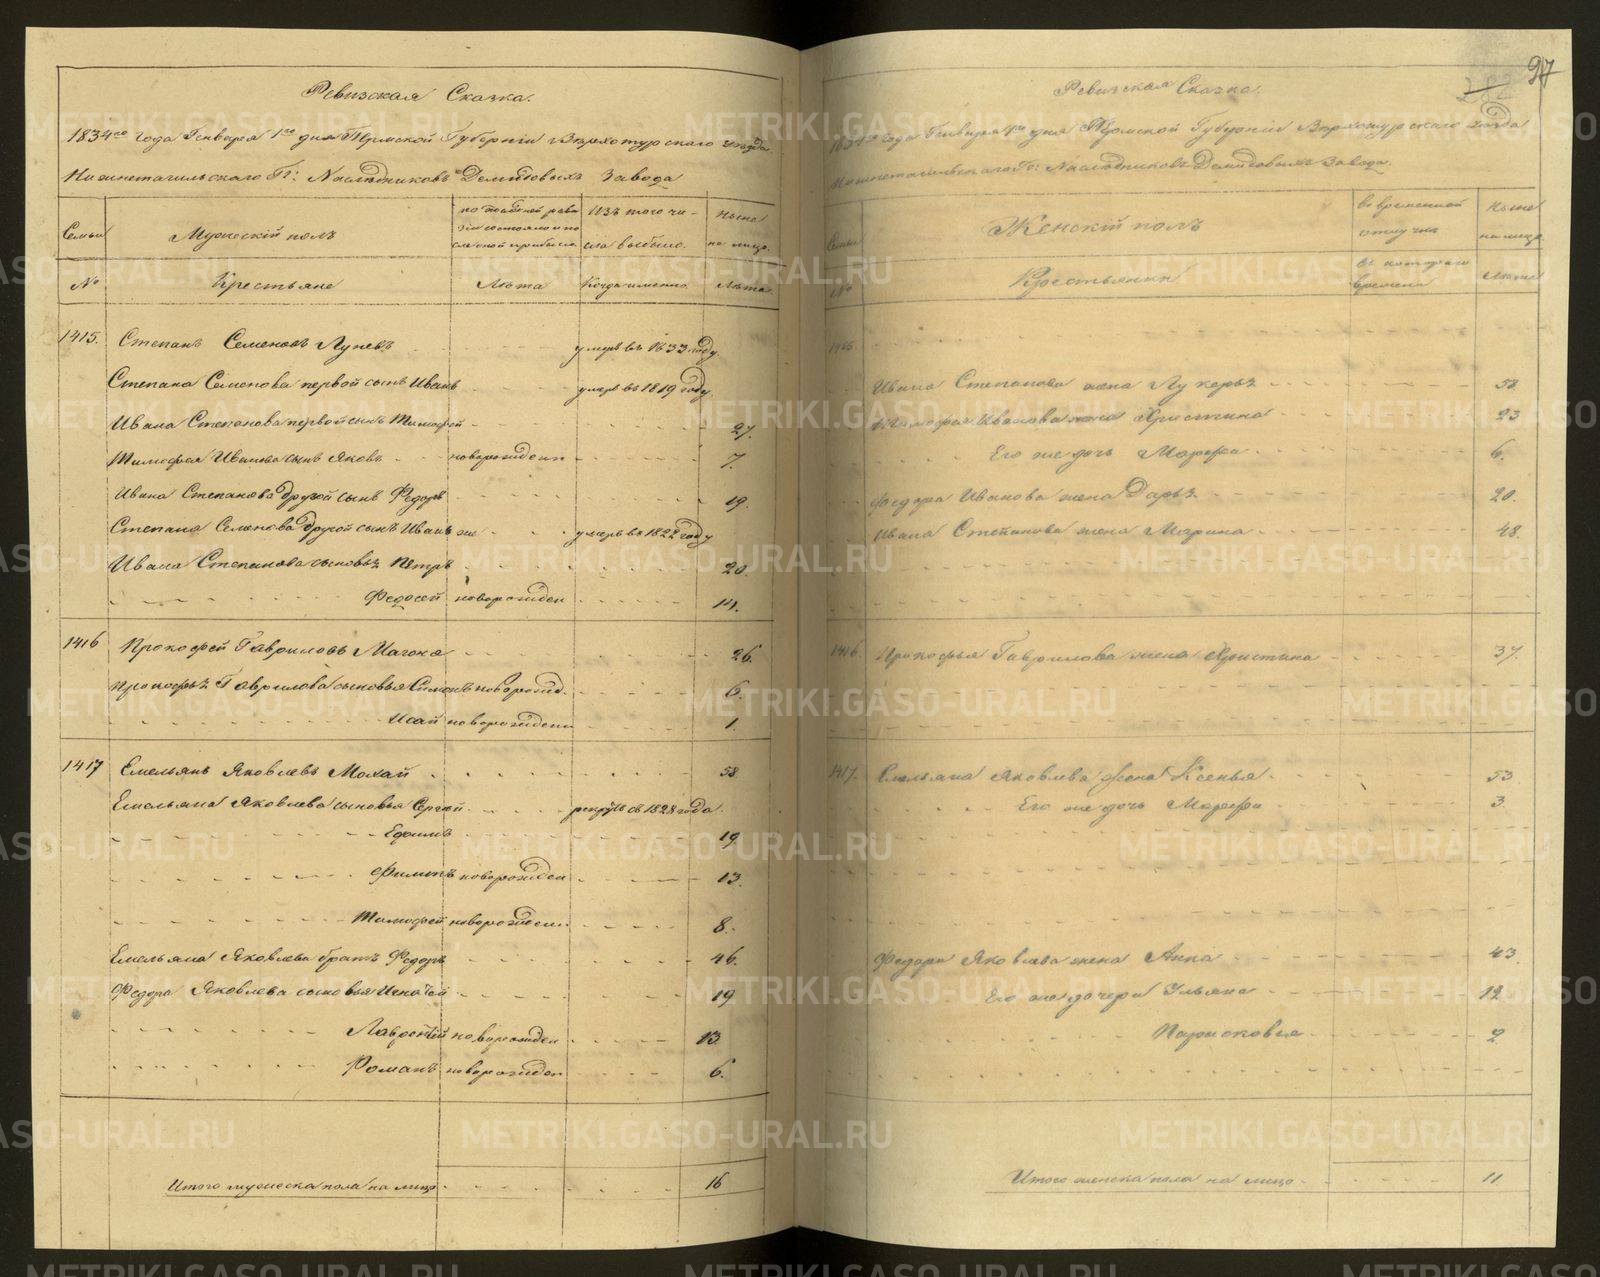 Ревизская Сказка.
1834го года Генваря 1го дня Пермской Губерніи Верхотурскаго уезда
Нижнетагильскаго Гг: Наслѣдниковъ Демидовыхъ Завода
Семьи Мужескій полъ по последней ревизіи состояло и после оной прибыло изъ того числа выбыло. Ныне на лицо.
№ Крестьяне Лѣта Когда именно Лѣта
1415. Степанъ Семеновъ умеръ въ 1833 году
Степана Семенова первой сынъ Иванъ умеръ въ 1819 году
Ивана Степанова первой сынъ Тимофей 27.
Тимофея Иванова сынъ Яковъ новорожден 7.
Ивана Степанова другой сынъ Федоръ 19.
Степана Семенова другой сынъ Иванъ же умеръ въ 1822 году
Ивана Степанова сыновья Петръ 20.
Федосей новорожден 14.
1416 Прокофей Гавриловъ 26.
Прокофья Гаврилова сыновья Симонъ новорожд. 6.
Исай новорожден 1.
1417 Емельянъ Яковлевъ Мохай 58
Емельяна Яковлева сыновья Сергей рекрутъ съ 1828 года.
Ефимъ 19
Филипъ новорожден 13.
Тимофей новорожден. 8.
Емельяна Яковлева братъ Федоръ 46.
Федора Яковлева сыновья Игнатей 19
Лаврентій новорожден 13
Романъ новорожден 6.
Итого мужеска пола на лицо 16
97
Ревизская Сказка.
1834го года Генваря 1го дня Пермской Губерніи Верхотурскаго уезда
Нижнетагильскаго Гг: Наслѣдниковъ Демидовыхъ Завода.
Семьи Женскій полъ во временной отлучке Ныне на лицо
№ Крестьянки съ котораго времени Лѣта
1415
Ивана Степанова жена Лукерья 58
Тимофея Иванова жена Христина 23
Его же дочь Марфа 6.
Федора Иванова жена Дарья 20.
Ивана Степанова жена Марина 48.
1416. Прокофья Гаврилова жена Христина 37.
1417. Емельяна Яковлева жена Ксенья 53
Его же дочь Марфа 3.
Федора Яковлева жена Анна 43.
Его же дочери Ульяна 12
Парасковья 2
Итого женска пола на лицо 11
METRIKI.GASO-URAL.RU